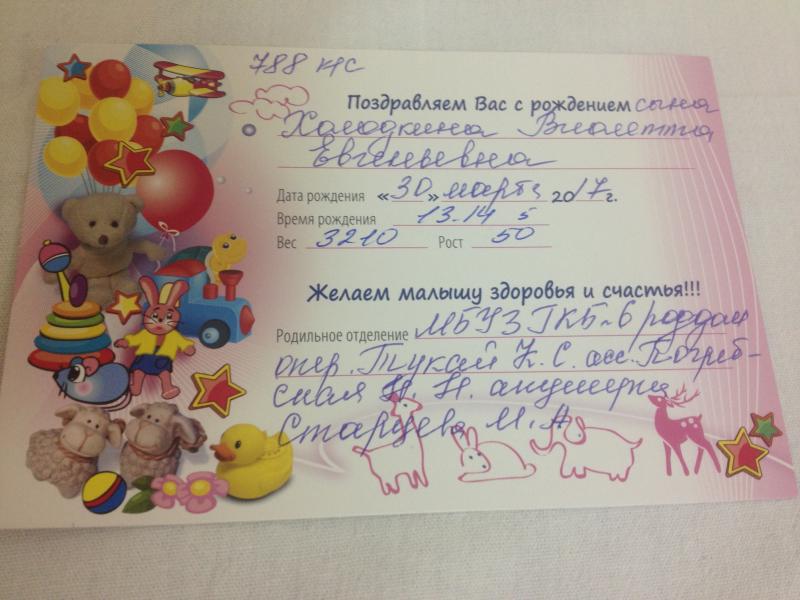 788 кс
Поздравляем Вас с рождением сына
Холодкина Виолетта
Евгеньевна
Дата рождения «30» марта 2017г.
Время рождения 13.14 5
Вес 3210 Рост 50
Желаем малышу здоровья и счастья!!!
Родильное отделение МБУЗ ГКБ-6 роддом
опер. Тукай К. С. асс. Погреб-
ная Н. Н. акушерка
Старцева М. А